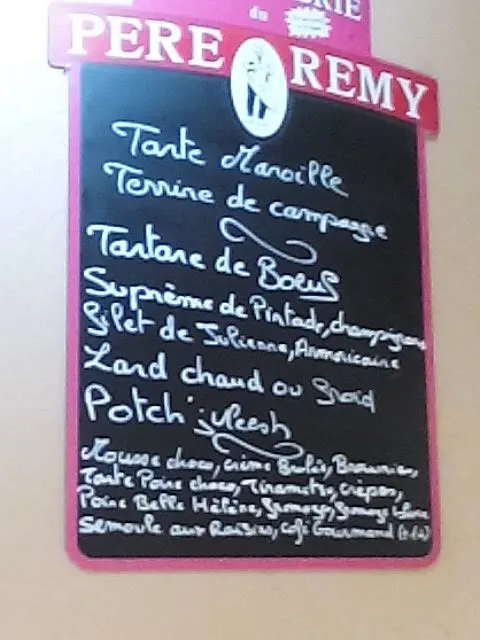 RIE
du
PERE REMY
Tarte Maroille
Terrine de campagne
Tartare de Boeuf
Suprême de Pintade, champignons
Filet de Julienne, Armoricaine
Lard chaud ou froid
Potch' vleesh
Mousse choco, crème Brulée, Brownies,
Tarte Poire choco, Tiramisu, crêpes,
Poire Belle Hélène, fromage, fromage
Semoule aux Raisins, café Gourmand